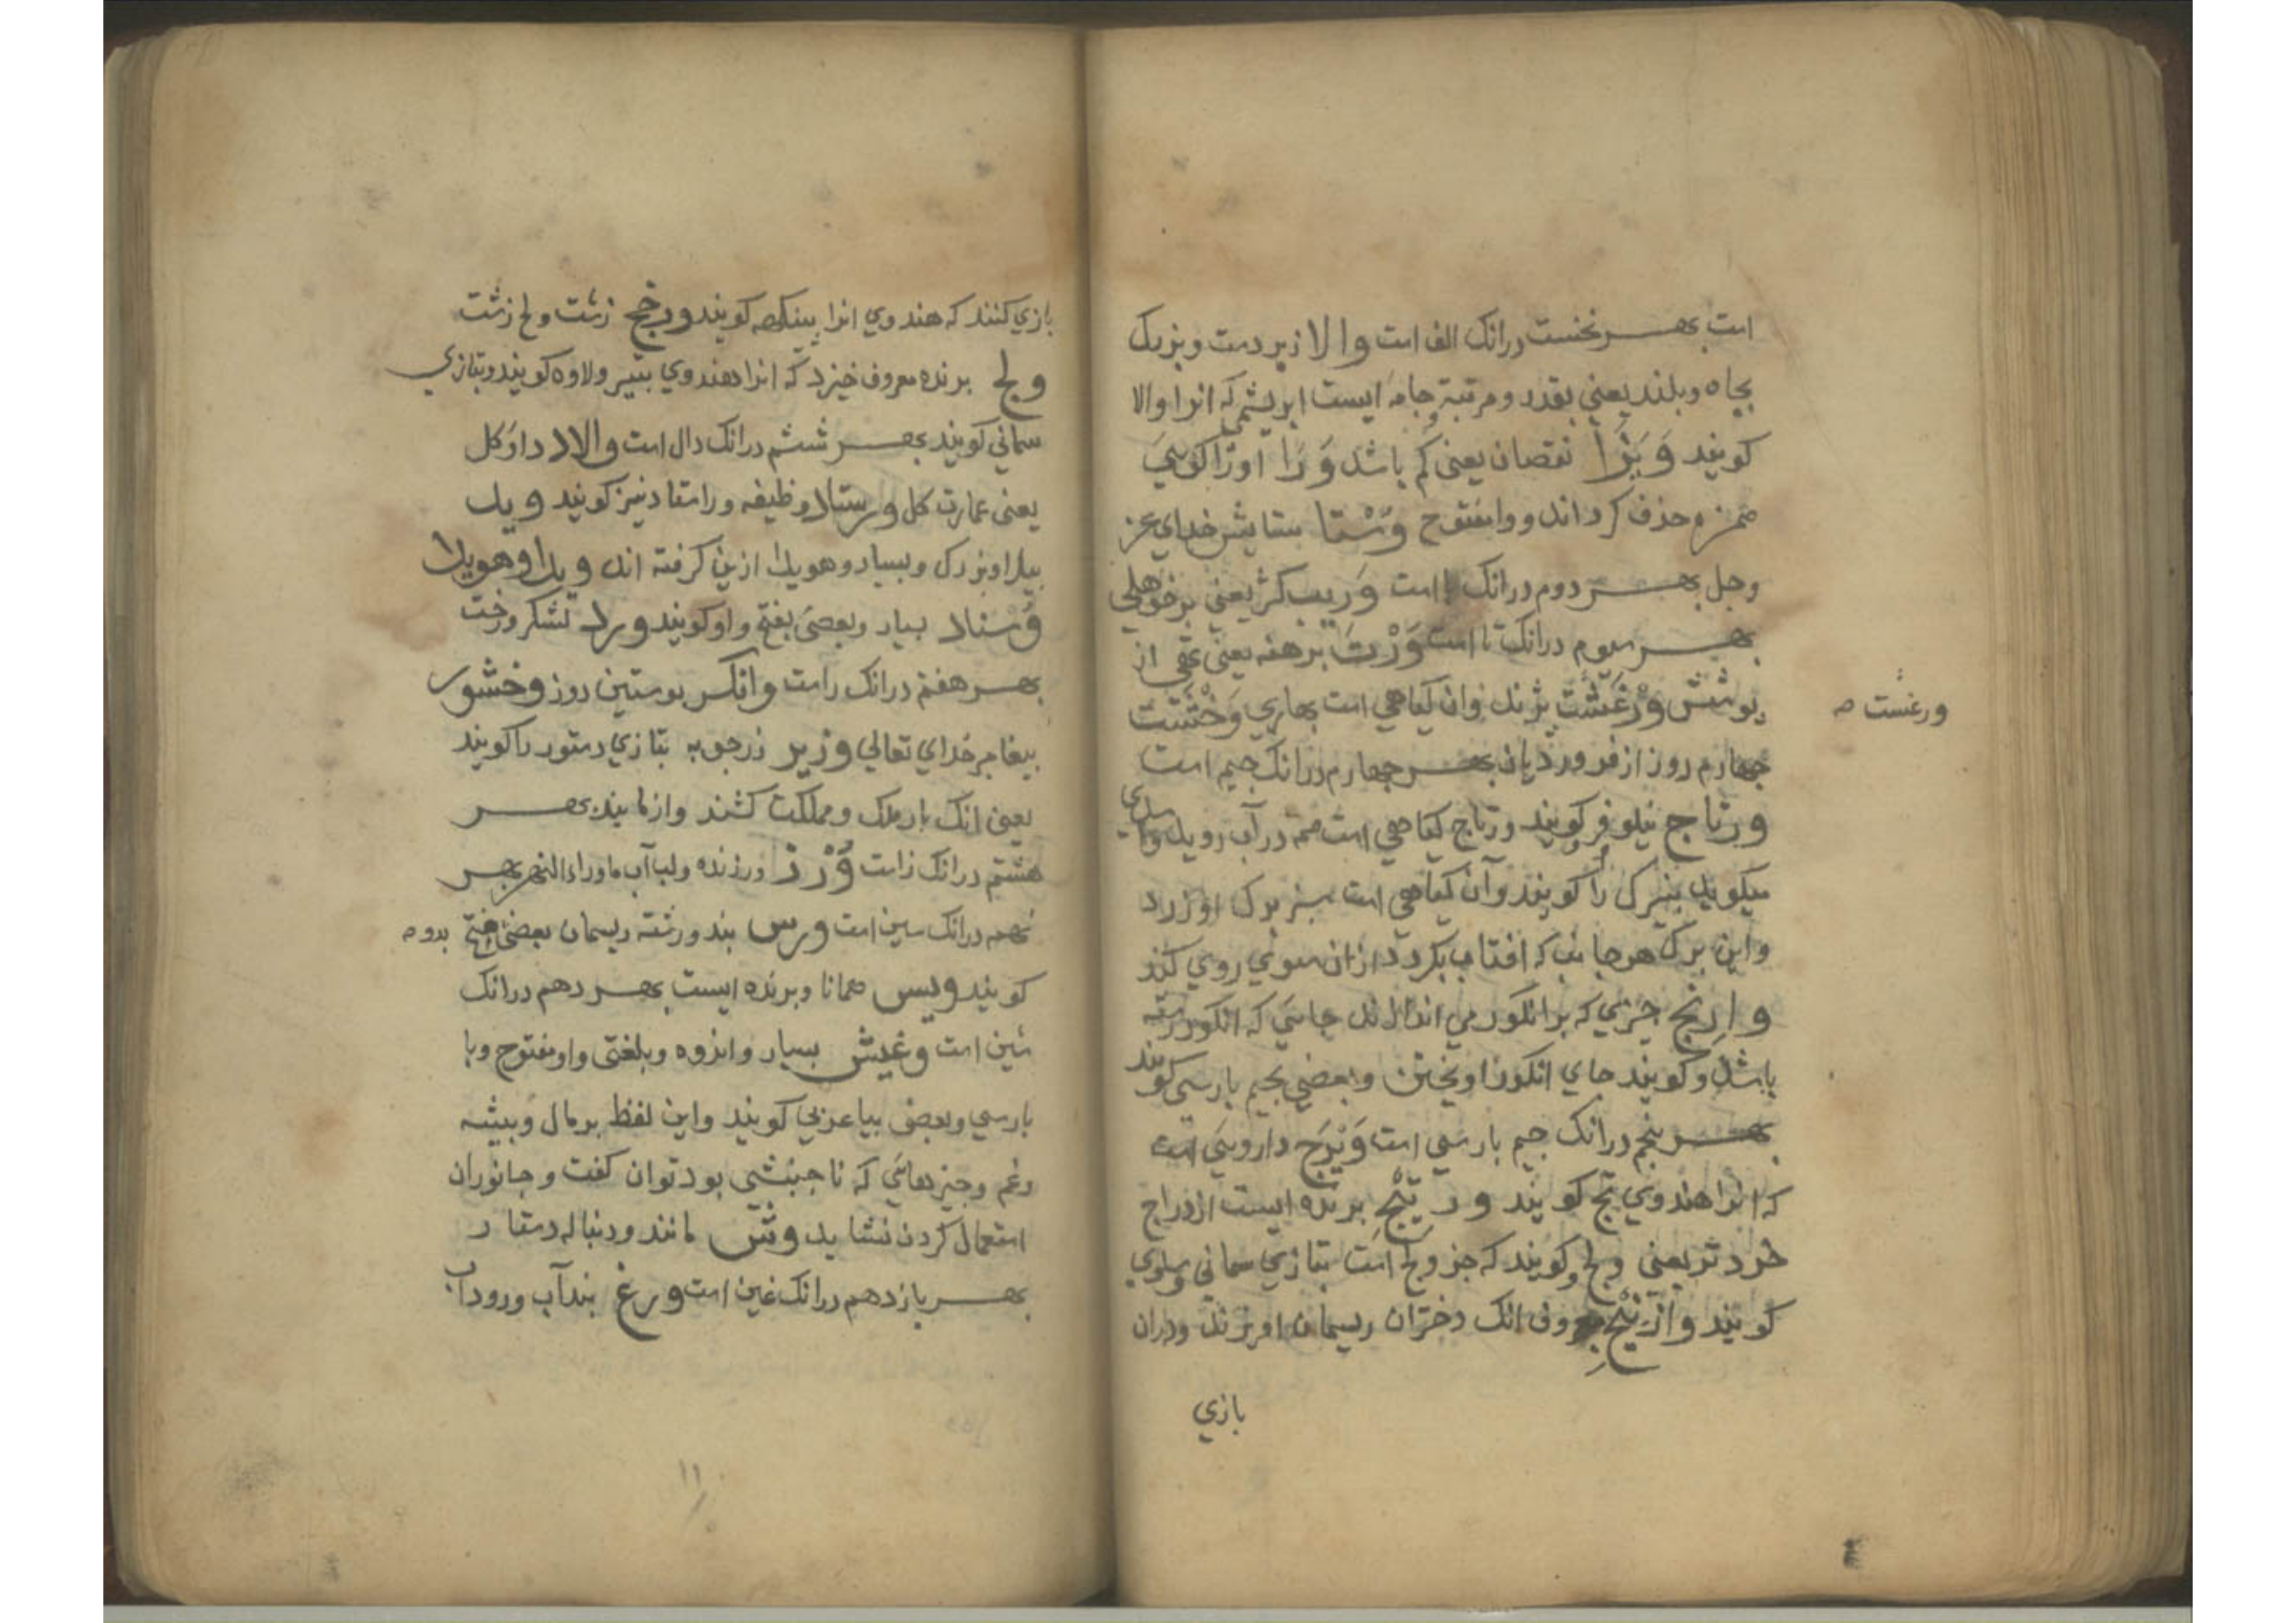 است بهر نخست درانک الف است والا زبردست وبزرک
بجاه وبلند یعنی بقدر ومرتبه وجامه ایست ابریشمی که انرا والا
کویند وَیَرا نقصان یعنی کم باشد وَرَا اورا کویی
همزه حذف کرداند وواو مفتوح وُسْتا ستایش خدای عز
وجل بهر دوم درانک با است وَریب کژ یعنی
بهر سوم درانک تا است وَرْت برهنه یعنی تهی از
پوشش وَرْغَشْت پژند وان کیاهی است بهاری وَخْشَت
چهارم روز از فروردیان بهر چهارم درانک جیم است
ورتاج نیلوفر کویند ورتاج کیاهی است همه در آب روید
میکوید پنیرک را کویند وآن کیاهی است سبز برک او زرد
واین برک هر جانب که افتاب بکردد ازان سوی روی کند
وارنج چیزی که بر انکور می اندازند جایی که انکور رسته
باشد وکویند جای انکور اویختن وبعضی بجیم پارسی کویند
بهر پنجم درانک جیم پارسی است وَیرَج دارویی است
که انرا هندوی بج کویند ورتیج پرنده ایست از دراج
خردتر یعنی ولج وکویند که جز ولج است بتازی سمانی وسلوی
کویند وازنیج چون انک دختران ریسمان اویزند ودران
بازی
ورغست ص
بازی کنند که هندوی انرا پینکهه کویند ورخج زشت ولخ زشت
ولج پرنده معروف خیزد که انرا هندوی بتیر ولاوه کویند وبتازی
سمانی کویند بهر ششم درانک دال است والاد داو کل
یعنی عمارت کل ورستاد وظیفه وراستاد نیز کویند وید
بیدا وبزرک وبسیار وهویدا ازین کرفته اند ویدا وهویدا
وُسناد بسیار وبعضی بفتح واو کویند ورد لشکر ورخت
بهر هفتم درانک را است وانکر پوستین دوز وخشور
پیغامبر خدای تعالی وزیر زرچوبه بتازی دستور را کویند
یعنی انک بار ملک ومملکت کشند وازمایند بهر
هشتم درانک زا است وُرْز ورزنده ولب آب ماوراءالنهر بهر
نهم درانک سین است ورس بند ورشته ریسمان بعضی بفتح
بدو ص
کویند ویس همانا وپرنده ایست بهر دهم درانک
شین است وغیش بسیار وانبوه وبلغتی واو مفتوح وبا
پارسی وبعضی بیا عربی کویند واین لفظ بر مال وبیشه
وغم وچیزهایی که نا جنبشی بود توان کفت وجانوران
استعمال کردن نشاید وش مانند ودنباله دستار
بهر یازدهم درانک غین است ورغ بند آب ورود آب
۱۱